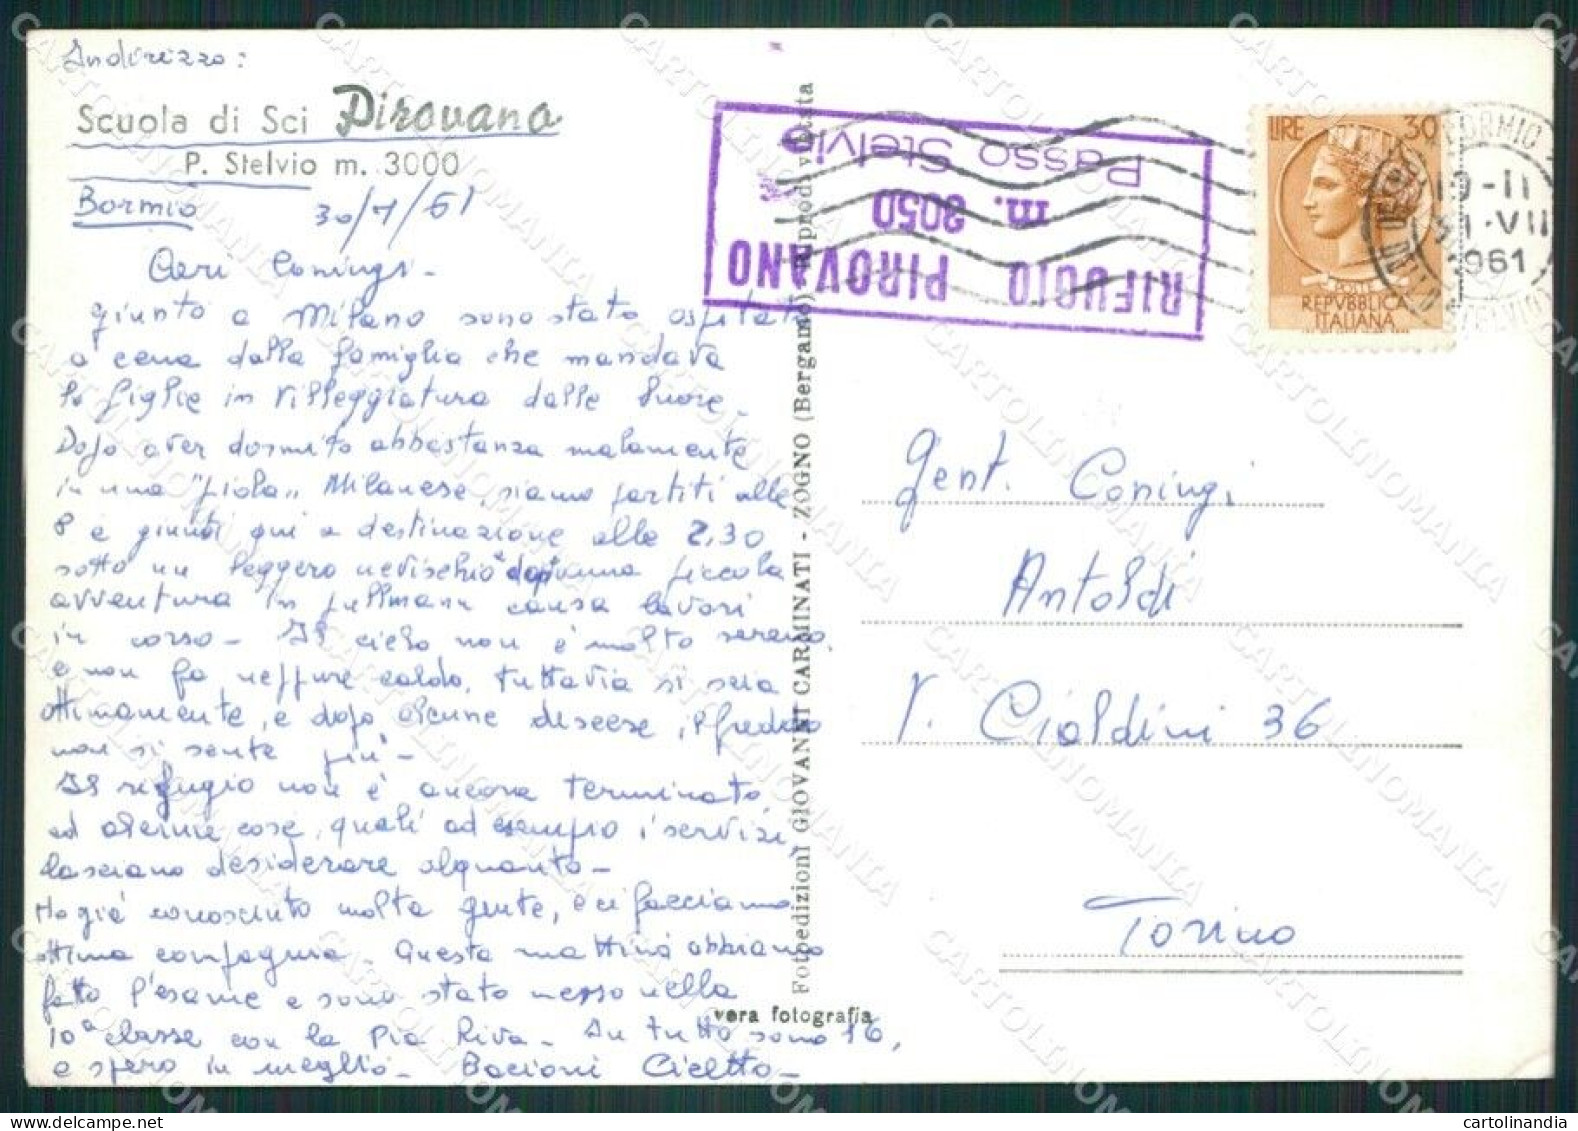 Indirizzo:
Scuola di Sci Pirovano
P. Stelvio m. 3000
Bormio 30/7/61
Cari Coningi -
giunto a Milano sono stato ospitato
a cena dalla famiglia che mandava
le figlie in villeggiatura dalle Suore -
Dopo aver dormito abbastanza malamente
in una "piola" Milanese, siamo partiti alle
8 e giunti qui a destinazione alle 2,30
sotto un leggero nevischio "dopo" una piccola
avventura in pullmann causa lavori
in corso - Il cielo non è molto sereno,
e non fa neppure caldo, tuttavia si scia
ottimamente, e dopo alcune discese, il freddo
non si sente più -
Il rifugio non è ancora terminato,
ed alcune cose, quali ad esempio i servizi,
lasciano desiderare alquanto -
Ho già conosciuto molta gente, e ci facciamo
ottima compagnia - Questa mattina abbiamo
fatto l'esame e sono stato messo nella
10ª classe con la Pia Riva - In tutto sono 16,
e spero in meglio - Bacioni Cicetto -
RIFUGIO PIROVANO
m. 3050
Passo Stelvio
LIRE 30
POSTE
REPVBBLICA
ITALIANA
BORMIO
10-11
31·VII
1961
STELVIO
Fotoedizioni GIOVANNI CARMINATI - ZOGNO (Bergamo) Riprod. vietata
vera fotografia
Gent. Coningi
Antoldi
V. Cialdini 36
Torino
CARTOLINOMANIA
cartolinandia